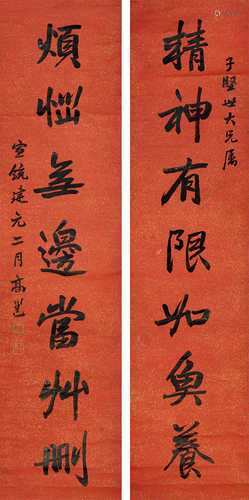 子堅世大兄屬
精神有限如魚養
煩惱無邊當艸刪
宣統建元二月高邕